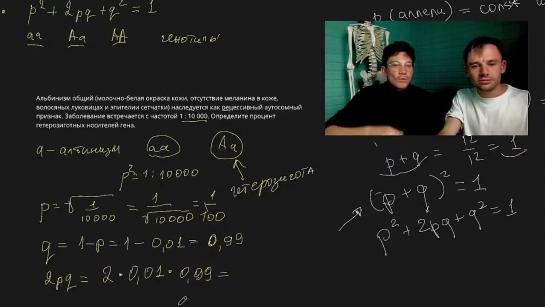 p² + 2pq + q² = 1
aa Aa AA генотипы
p (аллели) = const
Альбинизм общий (молочно-белая окраска кожи, отсутствие меланина в коже,
волосяных луковицах и эпителии сетчатки) наследуется как рецессивный аутосомный
признак. Заболевание встречается с частотой 1 : 10 000. Определите процент
гетерозиготных носителей гена.
a - альбинизм aa Aa
p² = 1 : 10000
гетерозигота
p = √1/10000 = 1/√10000 = 1/100
q = 1 - p = 1 - 0,01 = 0,99
2pq = 2 · 0,01 · 0,99 =
p + q = 12/12 = 1
(p + q)² = 1
p² + 2pq + q² = 1